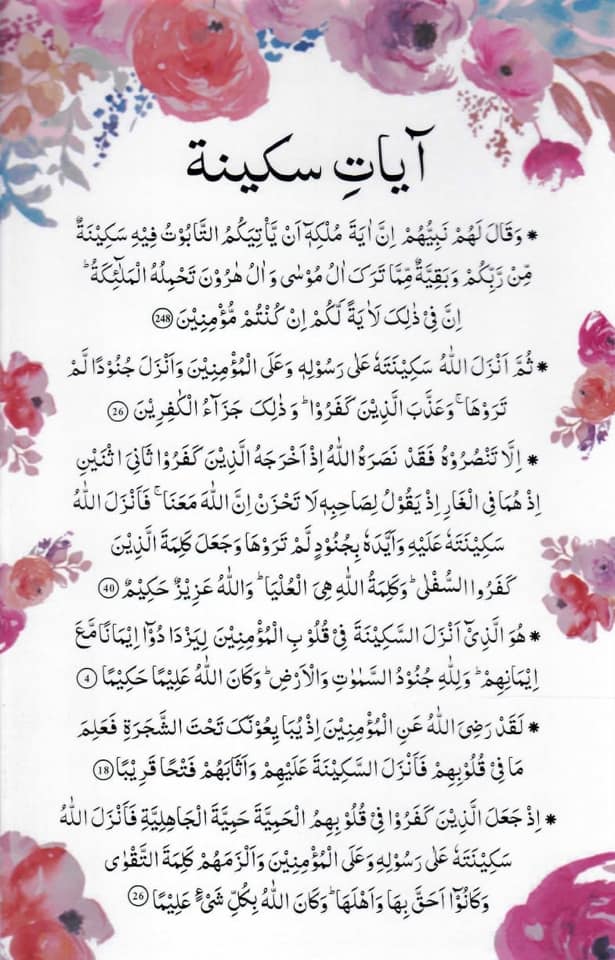 آیاتِ سکینة
* وَقَالَ لَهُمْ نَبِيُّهُمْ اِنَّ اٰيَةَ مُلْكِهٖٓ اَنْ يَّاْتِيَكُمُ التَّابُوْتُ فِيْهِ سَكِيْنَةٌ
مِّنْ رَّبِّكُمْ وَبَقِيَّةٌ مِّمَّا تَرَكَ اٰلُ مُوْسٰى وَاٰلُ هٰرُوْنَ تَحْمِلُهُ الْمَلٰٓئِكَةُ ؕ
اِنَّ فِيْ ذٰلِكَ لَاٰيَةً لَّكُمْ اِنْ كُنْتُمْ مُّؤْمِنِيْنَ 248
* ثُمَّ اَنْزَلَ اللّٰهُ سَكِيْنَتَهٗ عَلٰى رَسُوْلِهٖ وَعَلَى الْمُؤْمِنِيْنَ وَاَنْزَلَ جُنُوْدًا لَّمْ
تَرَوْهَا ۚ وَعَذَّبَ الَّذِيْنَ كَفَرُوْا ؕ وَذٰلِكَ جَزَآءُ الْكٰفِرِيْنَ 26
* اِلَّا تَنْصُرُوْهُ فَقَدْ نَصَرَهُ اللّٰهُ اِذْ اَخْرَجَهُ الَّذِيْنَ كَفَرُوْا ثَانِيَ اثْنَيْنِ
اِذْ هُمَا فِي الْغَارِ اِذْ يَقُوْلُ لِصَاحِبِهٖ لَا تَحْزَنْ اِنَّ اللّٰهَ مَعَنَا ۚ فَاَنْزَلَ اللّٰهُ
سَكِيْنَتَهٗ عَلَيْهِ وَاَيَّدَهٗ بِجُنُوْدٍ لَّمْ تَرَوْهَا وَجَعَلَ كَلِمَةَ الَّذِيْنَ
كَفَرُوا السُّفْلٰى ؕ وَكَلِمَةُ اللّٰهِ هِيَ الْعُلْيَا ؕ وَاللّٰهُ عَزِيْزٌ حَكِيْمٌ 40
* هُوَ الَّذِيْٓ اَنْزَلَ السَّكِيْنَةَ فِيْ قُلُوْبِ الْمُؤْمِنِيْنَ لِيَزْدَادُوْٓا اِيْمَانًا مَّعَ
اِيْمَانِهِمْ ؕ وَلِلّٰهِ جُنُوْدُ السَّمٰوٰتِ وَالْاَرْضِ ؕ وَكَانَ اللّٰهُ عَلِيْمًا حَكِيْمًا 4
* لَقَدْ رَضِيَ اللّٰهُ عَنِ الْمُؤْمِنِيْنَ اِذْ يُبَايِعُوْنَكَ تَحْتَ الشَّجَرَةِ فَعَلِمَ
مَا فِيْ قُلُوْبِهِمْ فَاَنْزَلَ السَّكِيْنَةَ عَلَيْهِمْ وَاَثَابَهُمْ فَتْحًا قَرِيْبًا 18
* اِذْ جَعَلَ الَّذِيْنَ كَفَرُوْا فِيْ قُلُوْبِهِمُ الْحَمِيَّةَ حَمِيَّةَ الْجَاهِلِيَّةِ فَاَنْزَلَ اللّٰهُ
سَكِيْنَتَهٗ عَلٰى رَسُوْلِهٖ وَعَلَى الْمُؤْمِنِيْنَ وَاَلْزَمَهُمْ كَلِمَةَ التَّقْوٰى
وَكَانُوْٓا اَحَقَّ بِهَا وَاَهْلَهَا ؕ وَكَانَ اللّٰهُ بِكُلِّ شَيْءٍ عَلِيْمًا 26